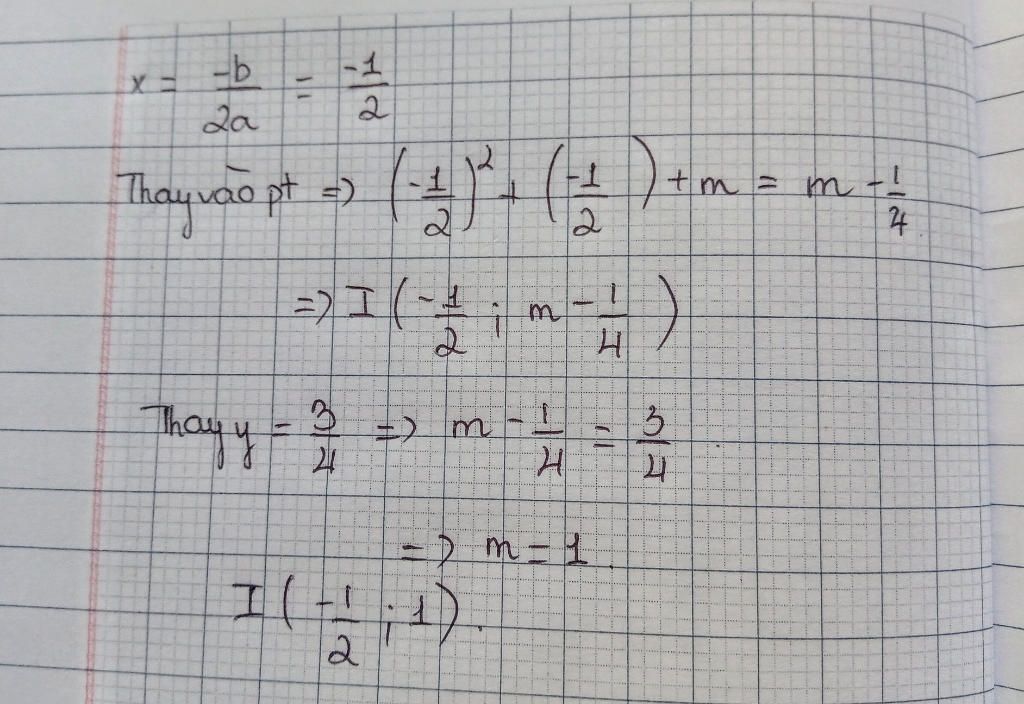 x = -b/2a = -1/2
Thay vào pt => (-1/2)² + (-1/2) + m = m - 1/4
=> I (-1/2 ; m - 1/4)
Thay y = 3/4 => m - 1/4 = 3/4
=> m = 1
I (-1/2 ; 1).